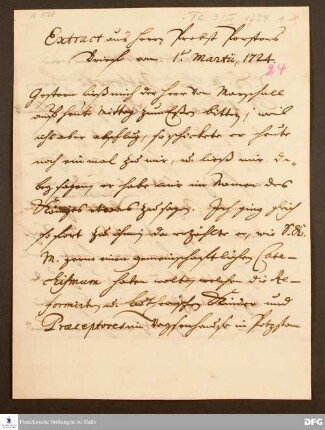 Extract aus Herrn Probst Porstens
Brief vom 1t Martii, 1724.
24
Gestern ließ mich der Herr von Marschall
auf heute Mittag zum Essen bitten, weil
ichs aber abschlug, so schickte er heute
noch einmal zu mir, u. ließ mir da-
bey sagen, er habe mir im Namen des
Königes etwas zu sagen. Ich ging gleich
so fort zu ihm, da erzählte er, wie S. K.
M. gerne einen gemeinschaftlichen Cate-
chismum haben wolten, welchen die Re-
formirten u. Lutherischen Kinder und
Præceptores im Waysenhause in Potsdam
Franckesche Stiftungen zu Halle
DFG